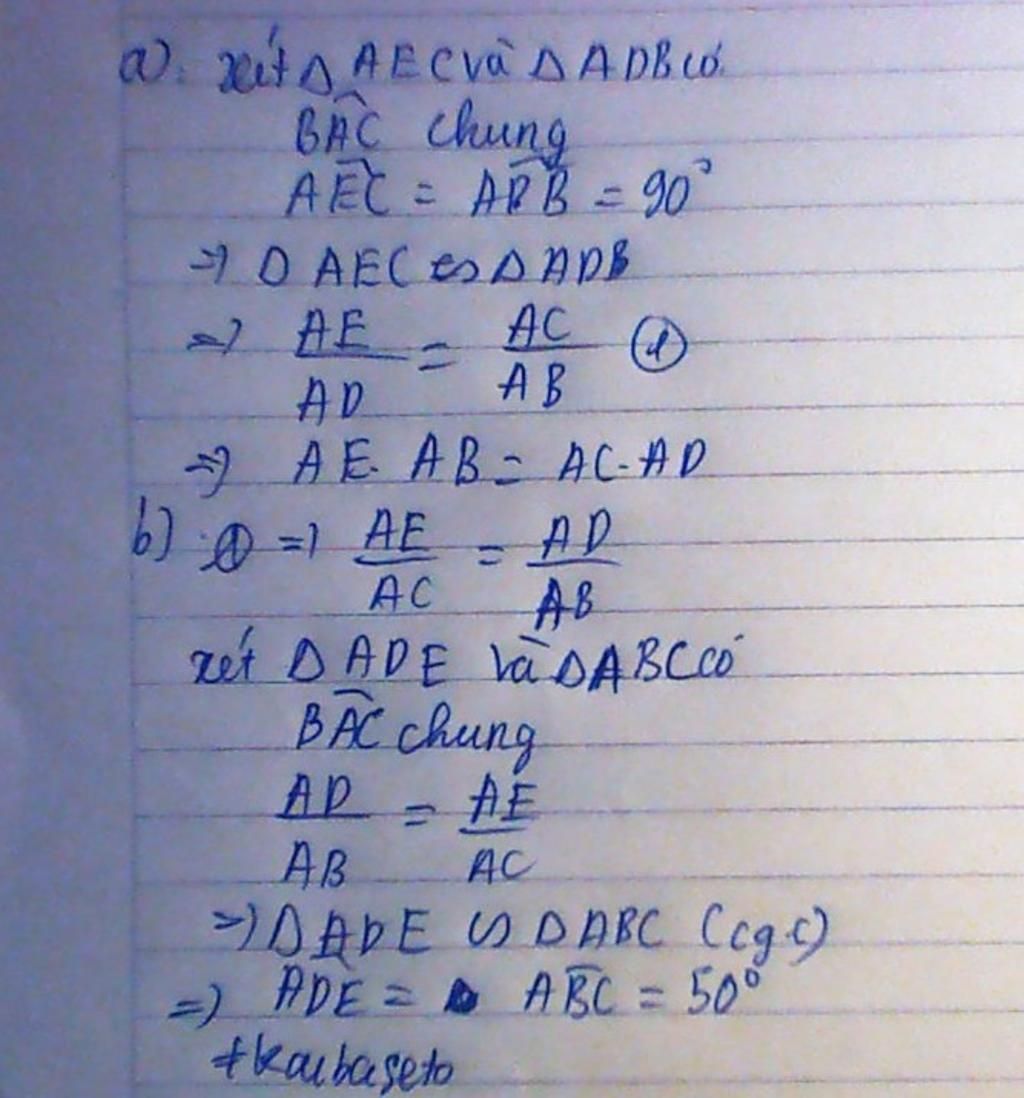 a). xét Δ AEC và Δ ADB có.
BAC chung
AEC = ADB = 90°
=> Δ AEC ∽ Δ ADB
=> AE/AD = AC/AB ①
=> AE. AB = AC. AD
b) ① => AE/AC = AD/AB
xét Δ ADE và Δ ABC có
BAC chung
AD/AB = AE/AC
=> Δ ADE ∽ Δ ABC (cg.c)
=> ADE = ABC = 50°